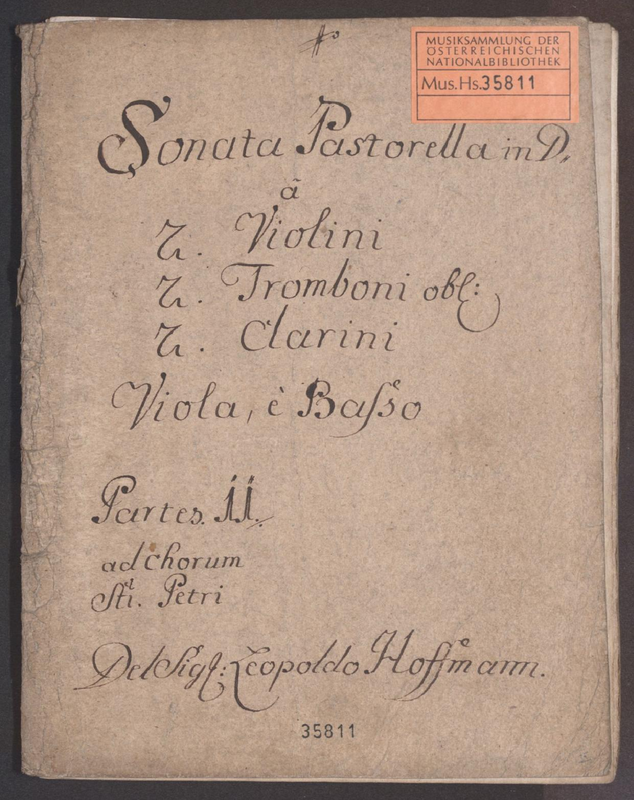 MUSIKSAMMLUNG DER
ÖSTERREICHISCHEN
NATIONALBIBLIOTHEK
Mus.Hs.35811
Sonata Pastorella in D.
à
2. Violini
2. Tromboni obl:
2. Clarini
Viola, è Baſso
Partes. 11.
ad chorum
Sti. Petri
Del Sigl: Leopoldo Hoffmann.
35811